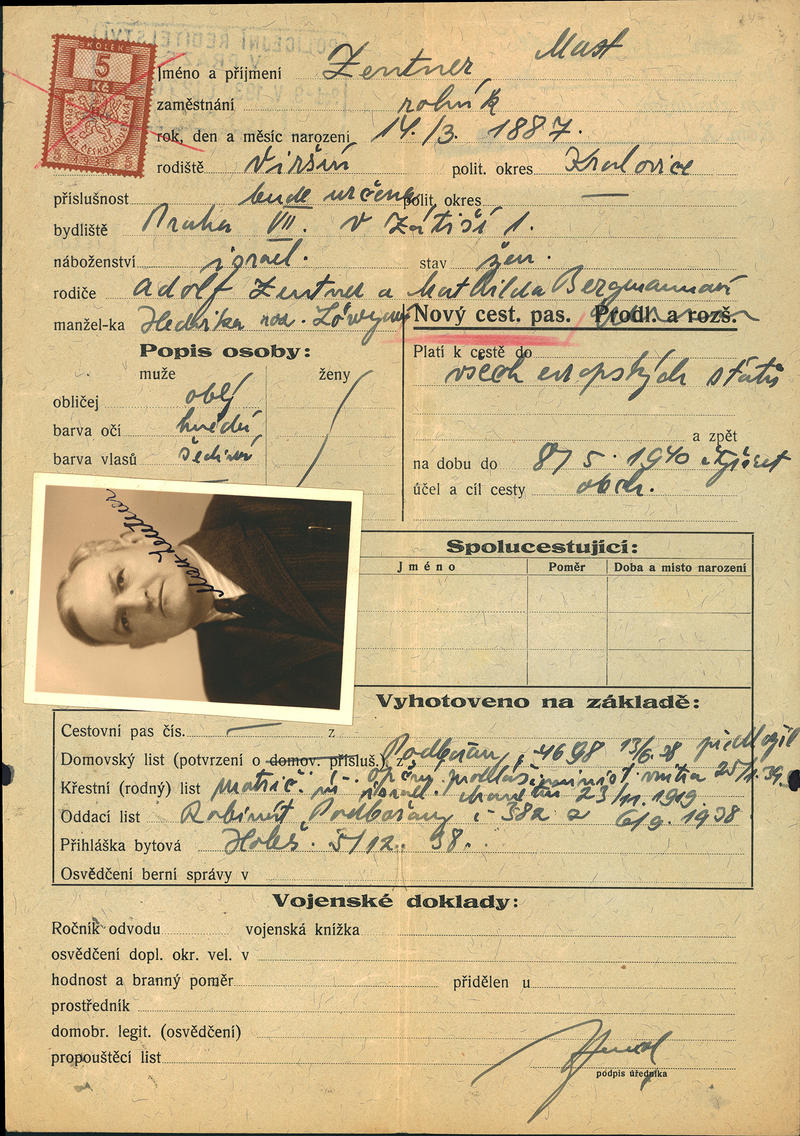 KOLEK
5
Kč
REPUBLIKA ČESKOSLOVENSKÁ
5 1938 5
POLICEJNÍ ŘEDITELSTVÍ
V PRAZE
Jméno a příjmení Zentner
zaměstnání rolník
rok, den a měsíc narození 14./3. 1887.
rodiště polit. okres Kralovice
příslušnost bude určena polit. okres —
bydliště Praha VII. V Zátiší 1.
náboženství israel. stav žen.
rodiče Adolf Zentner a Mathilda Bergmannová
manžel-ka Hedvika roz.
Nový cest. pas. Prodl. a rozš.
Popis osoby:
muže ženy
obličej oblý
barva očí hnědé
barva vlasů šedivé
Platí k cestě do
všech evropských států
a zpět
na dobu do 8/5. 1940
účel a cíl cesty obch.
Max Zentner
Spolucestující:
Jméno Poměr Doba a místo narození
Vyhotoveno na základě:
Cestovní pas čís. — z
Domovský list (potvrzení o domov. přísluš.) z Podbořan, 4698 13/6.38
Křestní (rodný) list 23/11. 1919. 25/1.39.
Oddací list Podbořany 6/9. 1938
Přihláška bytová 5/12. 38.
Osvědčení berní správy v
Vojenské doklady:
Ročník odvodu vojenská knížka
osvědčení dopl. okr. vel. v
hodnost a branný poměr přidělen u
prostředník
domobr. legit. (osvědčení)
propouštěcí list
podpis úředníka